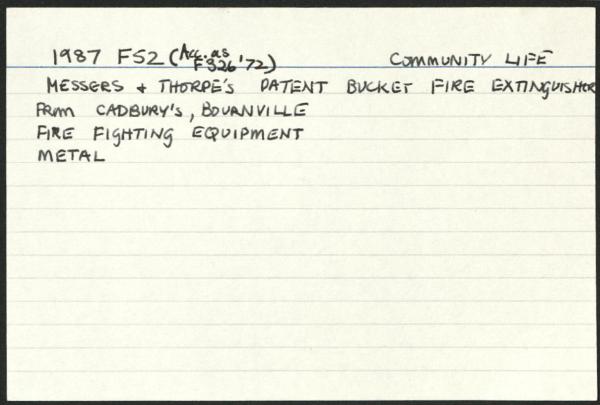 1987 F52 (Acc. as F326 '72) COMMUNITY LIFE
MESSERS + THORPE'S PATENT BUCKET FIRE EXTINGUISHOR
FROM CADBURY'S, BOURNVILLE
FIRE FIGHTING EQUIPMENT
METAL